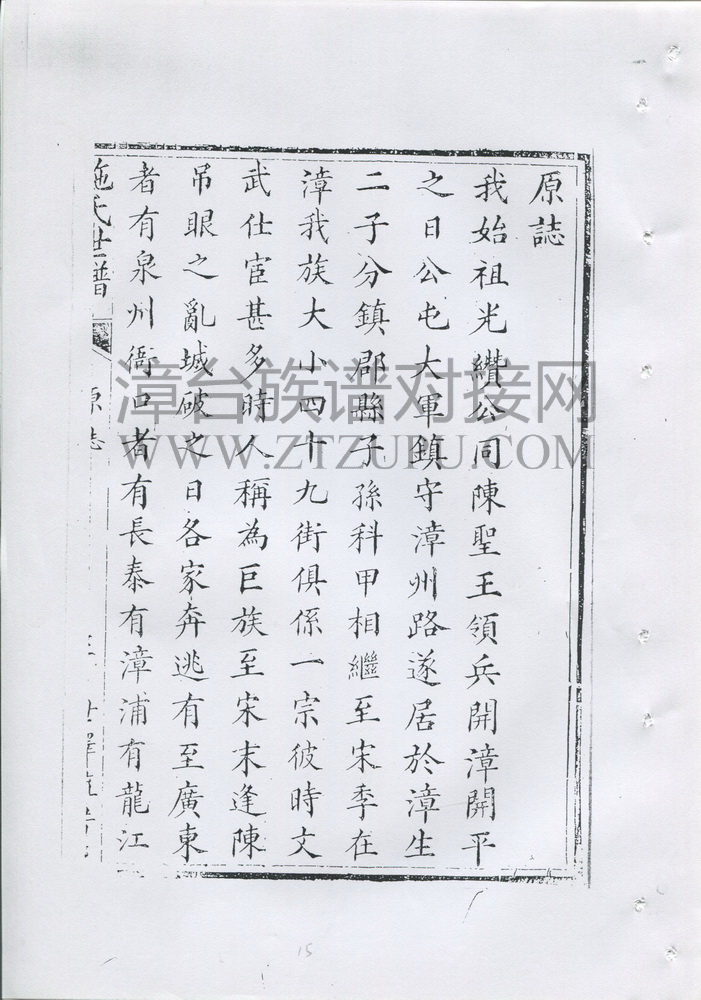 原誌
我始祖光纘公同陳聖王領兵開漳開平
之日公屯大軍鎮守漳州路遂居於漳生
二子分鎮郡縣子孫科甲相繼至宋季在
漳我族大小四十九街俱係一宗彼時文
武仕宦甚多時人稱為巨族至宋末逢陳
吊眼之亂城破之日各家奔逃有至廣東
者有泉州衙口者有長泰有漳浦有龍江
施氏世譜
原誌
漳台族谱对接网
WWW.ZTZUPU.COM
15